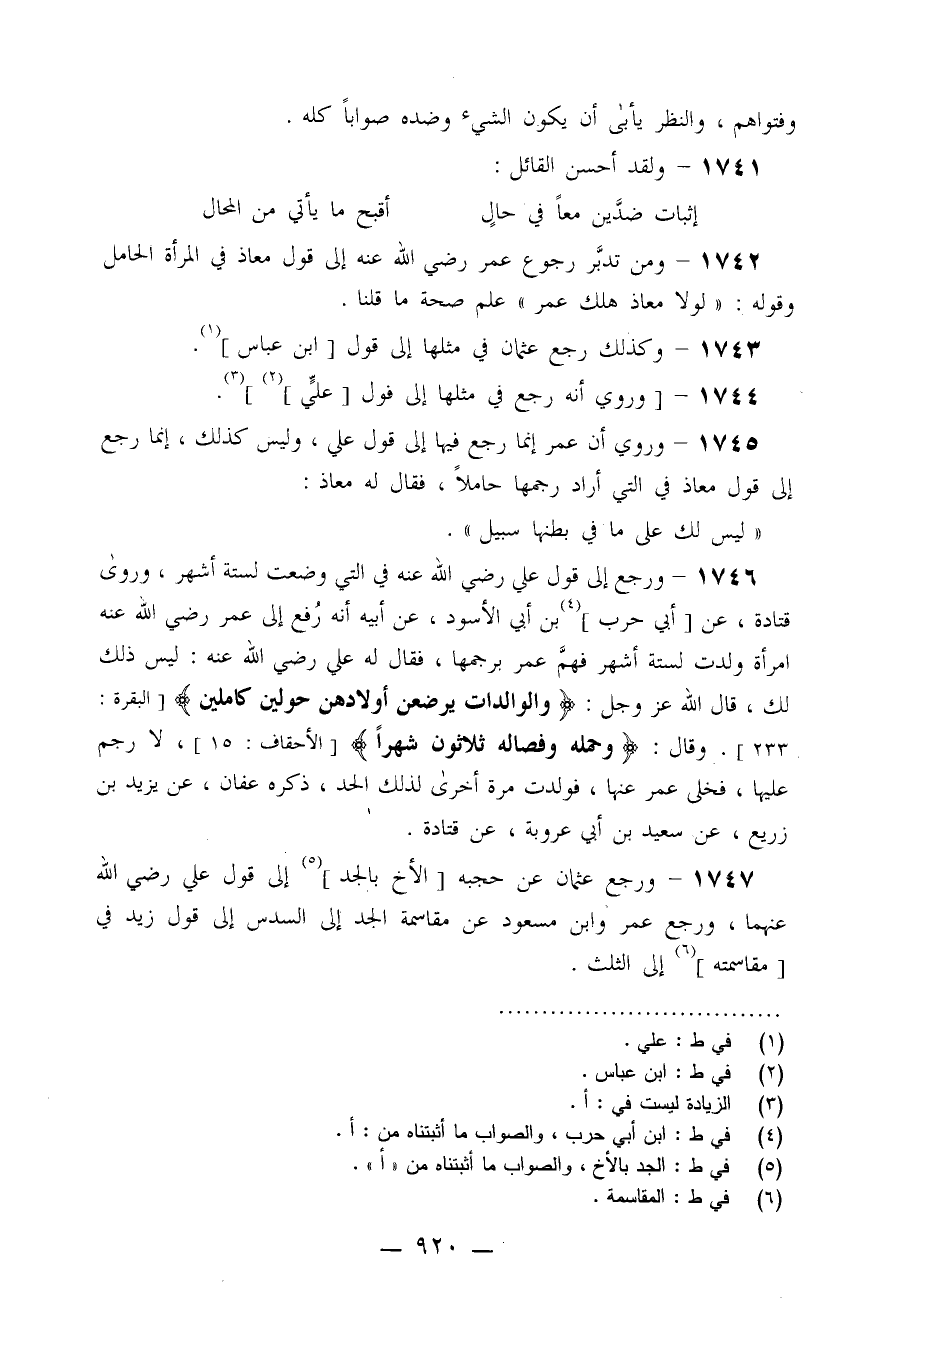 وفتواهم ، والنظر يأبىٰ أن يكون الشيء وضده صواباً كله .
١٧٤١ – ولقد أحسن القائل :
إثبات ضدَّين معاً في حالٍ أقبح ما يأتي من المحال
١٧٤٢ – ومن تدبَّر رجوع عمر رضي الله عنه إلى قول معاذ في المرأة الحامل
وقوله : « لولا معاذ هلك عمر » علم صحة ما قلنا .
١٧٤٣ – وكذلك رجع عثمان في مثلها إلى قول [ ابن عباس ](١).
١٧٤٤ – [ وروي أنه رجع في مثلها إلى فول [ عليٍّ ](٢) ](٣).
١٧٤٥ – وروي أن عمر إنما رجع فيها إلى قول علي ، وليس كذلك ، إنما رجع
إلى قول معاذ في التي أراد رجمها حاملاً ، فقال له معاذ :
« ليس لك على ما في بطنها سبيل » .
١٧٤٦ – ورجع إلى قول علي رضي الله عنه في التي وضعت لستة أشهر ، وروىٰ
قتادة ، عن [ أبي حرب ](٤)بن أبي الأسود ، عن أبيه أنه رُفع إلى عمر رضي الله عنه
امرأة ولدت لستة أشهر فهمَّ عمر برجمها ، فقال له علي رضي الله عنه : ليس ذلك
لك ، قال الله عز وجل : ﴿ والوالدات يرضعن أولادهن حولين كاملين ﴾ [ البقرة :
٢٣٣ ] . وقال : ﴿ وحمله وفصاله ثلاثون شهراً ﴾ [ الأحقاف : ١٥ ] ، لا رجم
عليها ، فخلى عمر عنها ، فولدت مرة أخرىٰ لذلك الحد ، ذكره عفان ، عن يزيد بن
زريع ، عن سعيد بن أبي عروبة ، عن قتادة .
١٧٤٧ – ورجع عثمان عن حجبه [ الأخ بالجد ](٥) إلى قول علي رضي الله
عنهما ، ورجع عمر وابن مسعود عن مقاسمة الجد إلى السدس إلى قول زيد في
[ مقاسمته ](٦) إلى الثلث .
................................
(١) في ط : علي .
(٢) في ط : ابن عباس .
(٣) الزيادة ليست في : أ .
(٤) في ط : ابن أبي حرب ، والصواب ما أثبتناه من : أ .
(٥) في ط : الجد بالأخ ، والصواب ما أثبتناه من « أ » .
(٦) في ط : المقاسمة .
— ٩٢٠ —